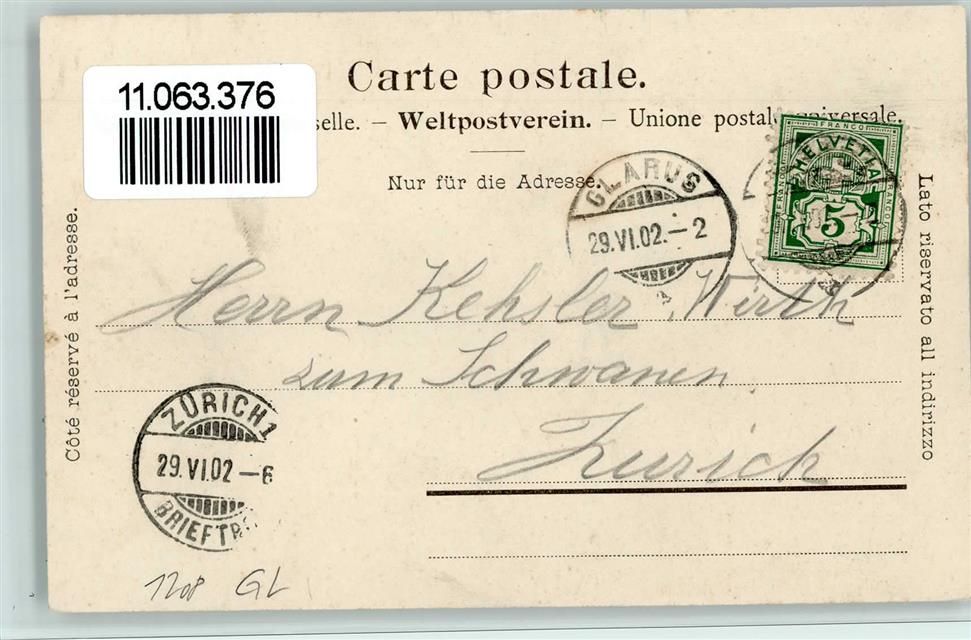 Carte postale.
11.063.376
selle. – Weltpostverein. – Unione postale universale.
Nur für die Adresse.
FRANCO
HELVETIA
FRANCO
FRANCO
5
GLARUS
29.VI.02.–2
Côté réservé à l'adresse.
Lato riservato all indirizzo
Herrn Kehsler, Wirth
zum Schwanen
Zurich
ZÜRICH 1
29.VI.02 –6
BRIEFTR
1208 GL